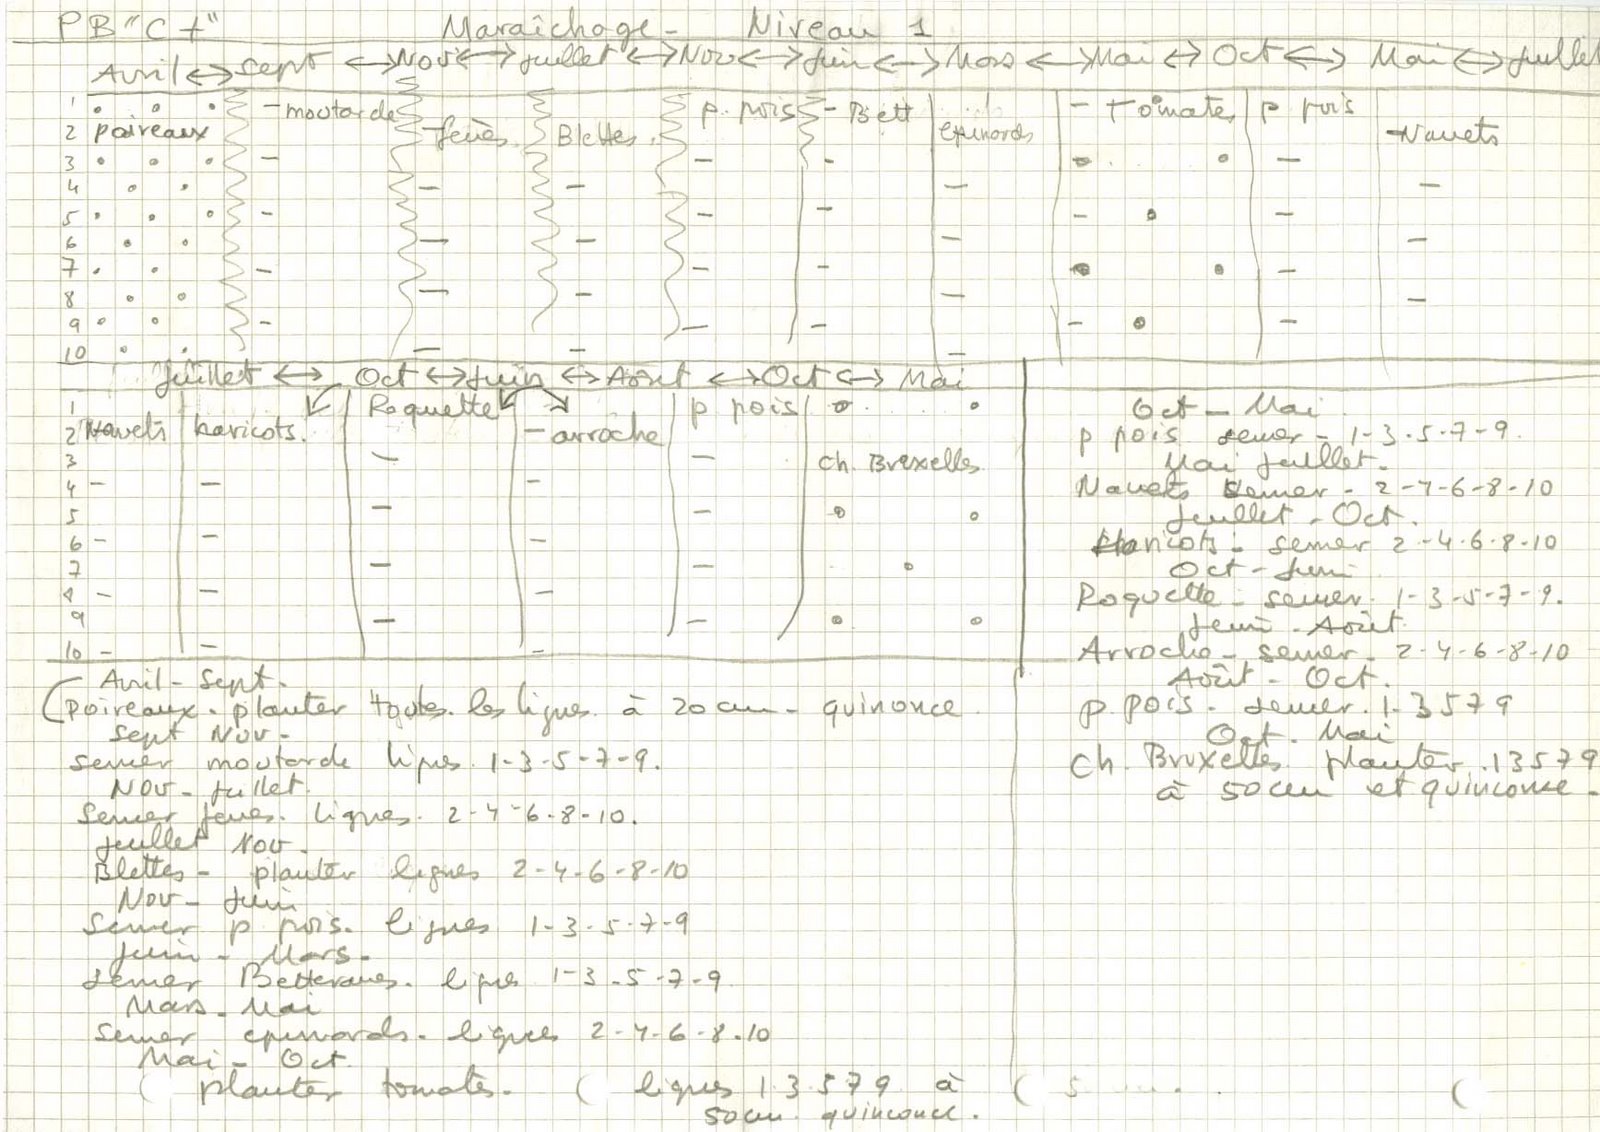 PB "C+" Maraîchage - Niveau 1
Avril ↔ Sept ↔ Nov ↔ Juillet ↔ Nov ↔ Juin ↔ Mars ↔ Mai ↔ Oct ↔ Mai ↔ Juillet
1 - moutarde p. pois - Bett - Tomates p pois
2 poireaux fèves Blettes epinards - Navets
3
4
5
6
7
8
9
10
Juillet ↔ Oct ↔ Juin ↔ Août ↔ Oct ↔ Mai
1 Roquette p pois
2 Navets haricots. - arroche
3 ch. Bruxelles
4
5
6
7
8
9
10
Oct - Mai
p pois semer - 1-3-5-7-9.
Mai Juillet.
Navets semer - 2-4-6-8-10
Juillet - Oct.
Haricots - semer 2-4-6-8-10
Oct - Juin
Roquette - semer. 1-3-5-7-9.
Juin - Août
Arroche - semer - 2-4-6-8-10
Août - Oct.
p pois - semer. 1-3 5 7 9
Oct. Mai
Ch. Bruxelles planter. 1 3 5 7 9
à 50 cm et quinconce.
Avril - Sept.
Poireaux - planter toutes les lignes à 20 cm - quinonce
Sept Nov -
semer moutarde lignes. 1-3-5-7-9.
Nov - Juillet.
Semer feves. lignes. 2-4-6-8-10.
Juillet Nov.
Blettes - planter lignes 2-4-6-8-10
Nov - Juin
Semer p pois. lignes 1-3-5-7-9
Juin - Mars.
semer Betteraves. lignes 1-3-5-7-9
Mars - Mai
semer epinards. lignes 2-4-6-8-10
Mai - Oct
planter tomates. lignes 1 3 5 7 9 à
50 cm quinconce.